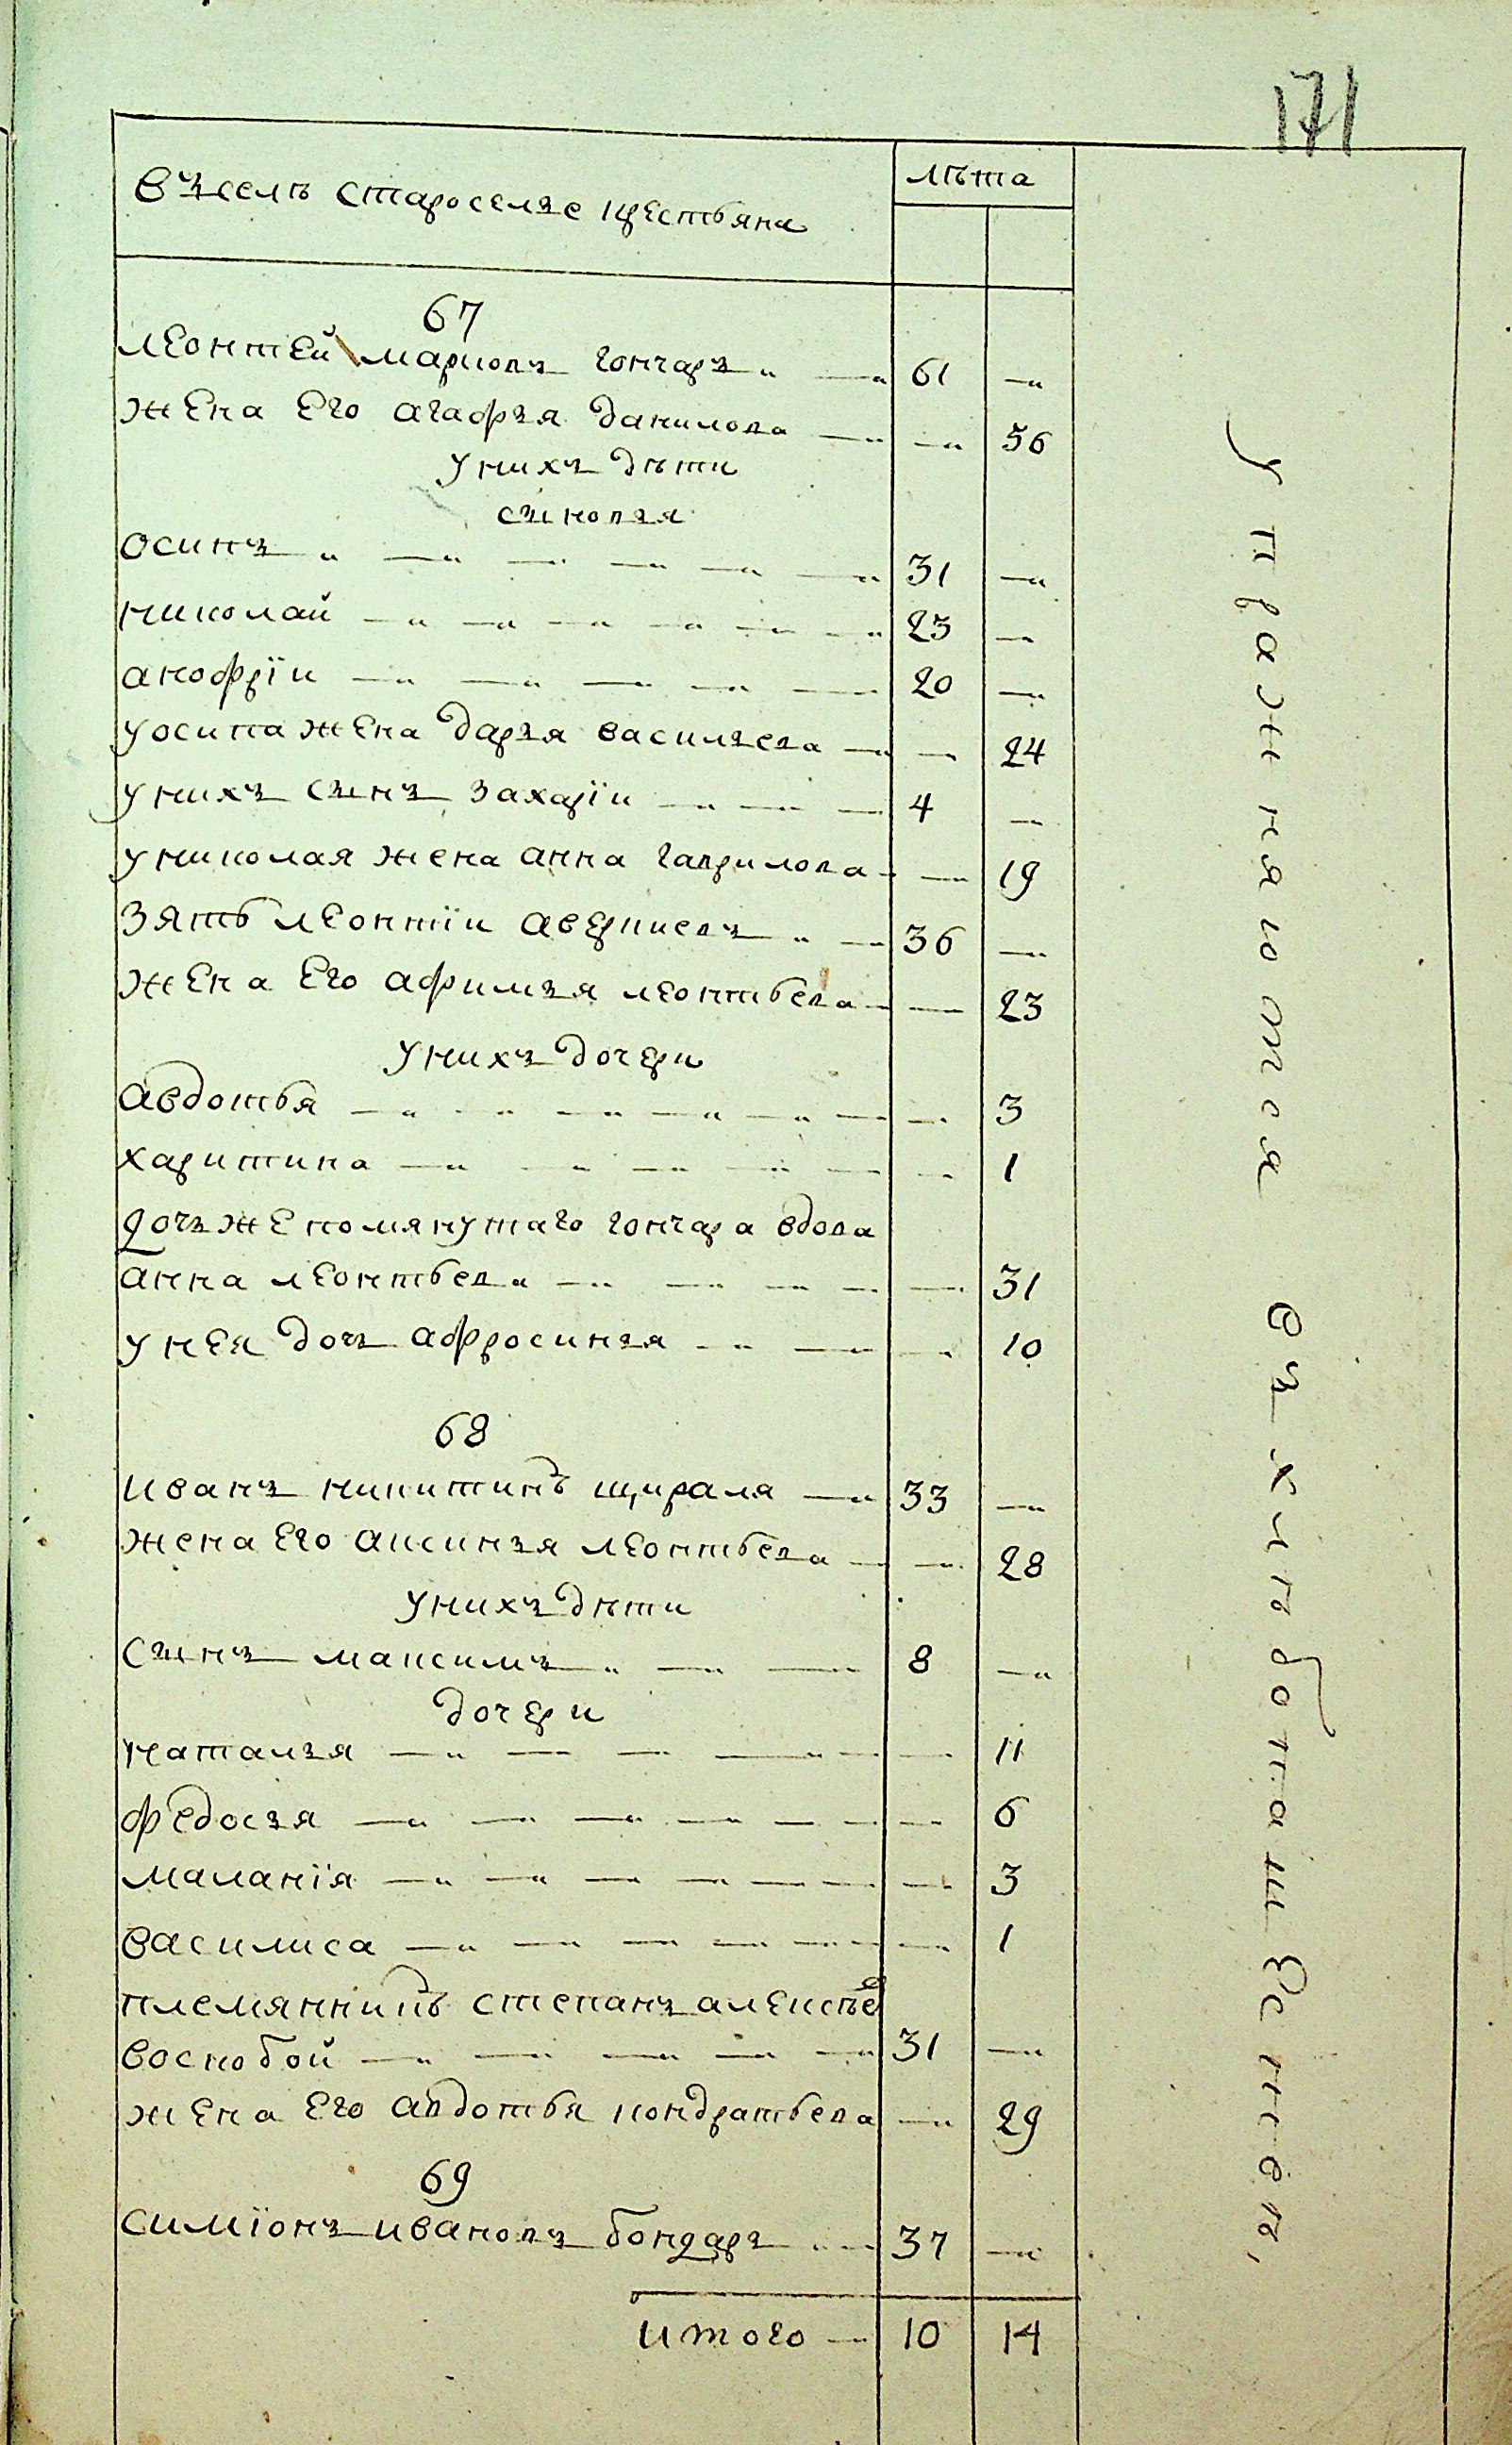 171
въ селѣ староселье крестьяна
лѣта
67
леонтей марковъ гончаръ 61
жена его агафья данилова 56
у нихъ дѣти
сыновья
осипъ 31
николай 23
анофрїи 20
у осипа жена дарья васильева 24
у нихъ сынъ захарїи 4
у николая жена анна гаврилова 19
зять леонтїи аверкиевъ 36
жена его афимья леонтьева 23
у нихъ дочери
авдотья 3
харитина 1
дочь же помянутаго гончара вдова
анна леонтьева 31
у нея дочь афросинья 10
68
иванъ никитинъ щираля 33
жена его аксинья леонтьева 28
у нихъ дѣти
сынъ максимъ 8
дочери
наталья 11
федосья 6
маланїя 3
василиса 1
племянникъ степанъ алексѣев
воскобой 31
жена его авдотья кондратьева 29
69
симїонъ ивановъ бондарь 37
итого 10 14
упражняются въ хлебопашествѣ,